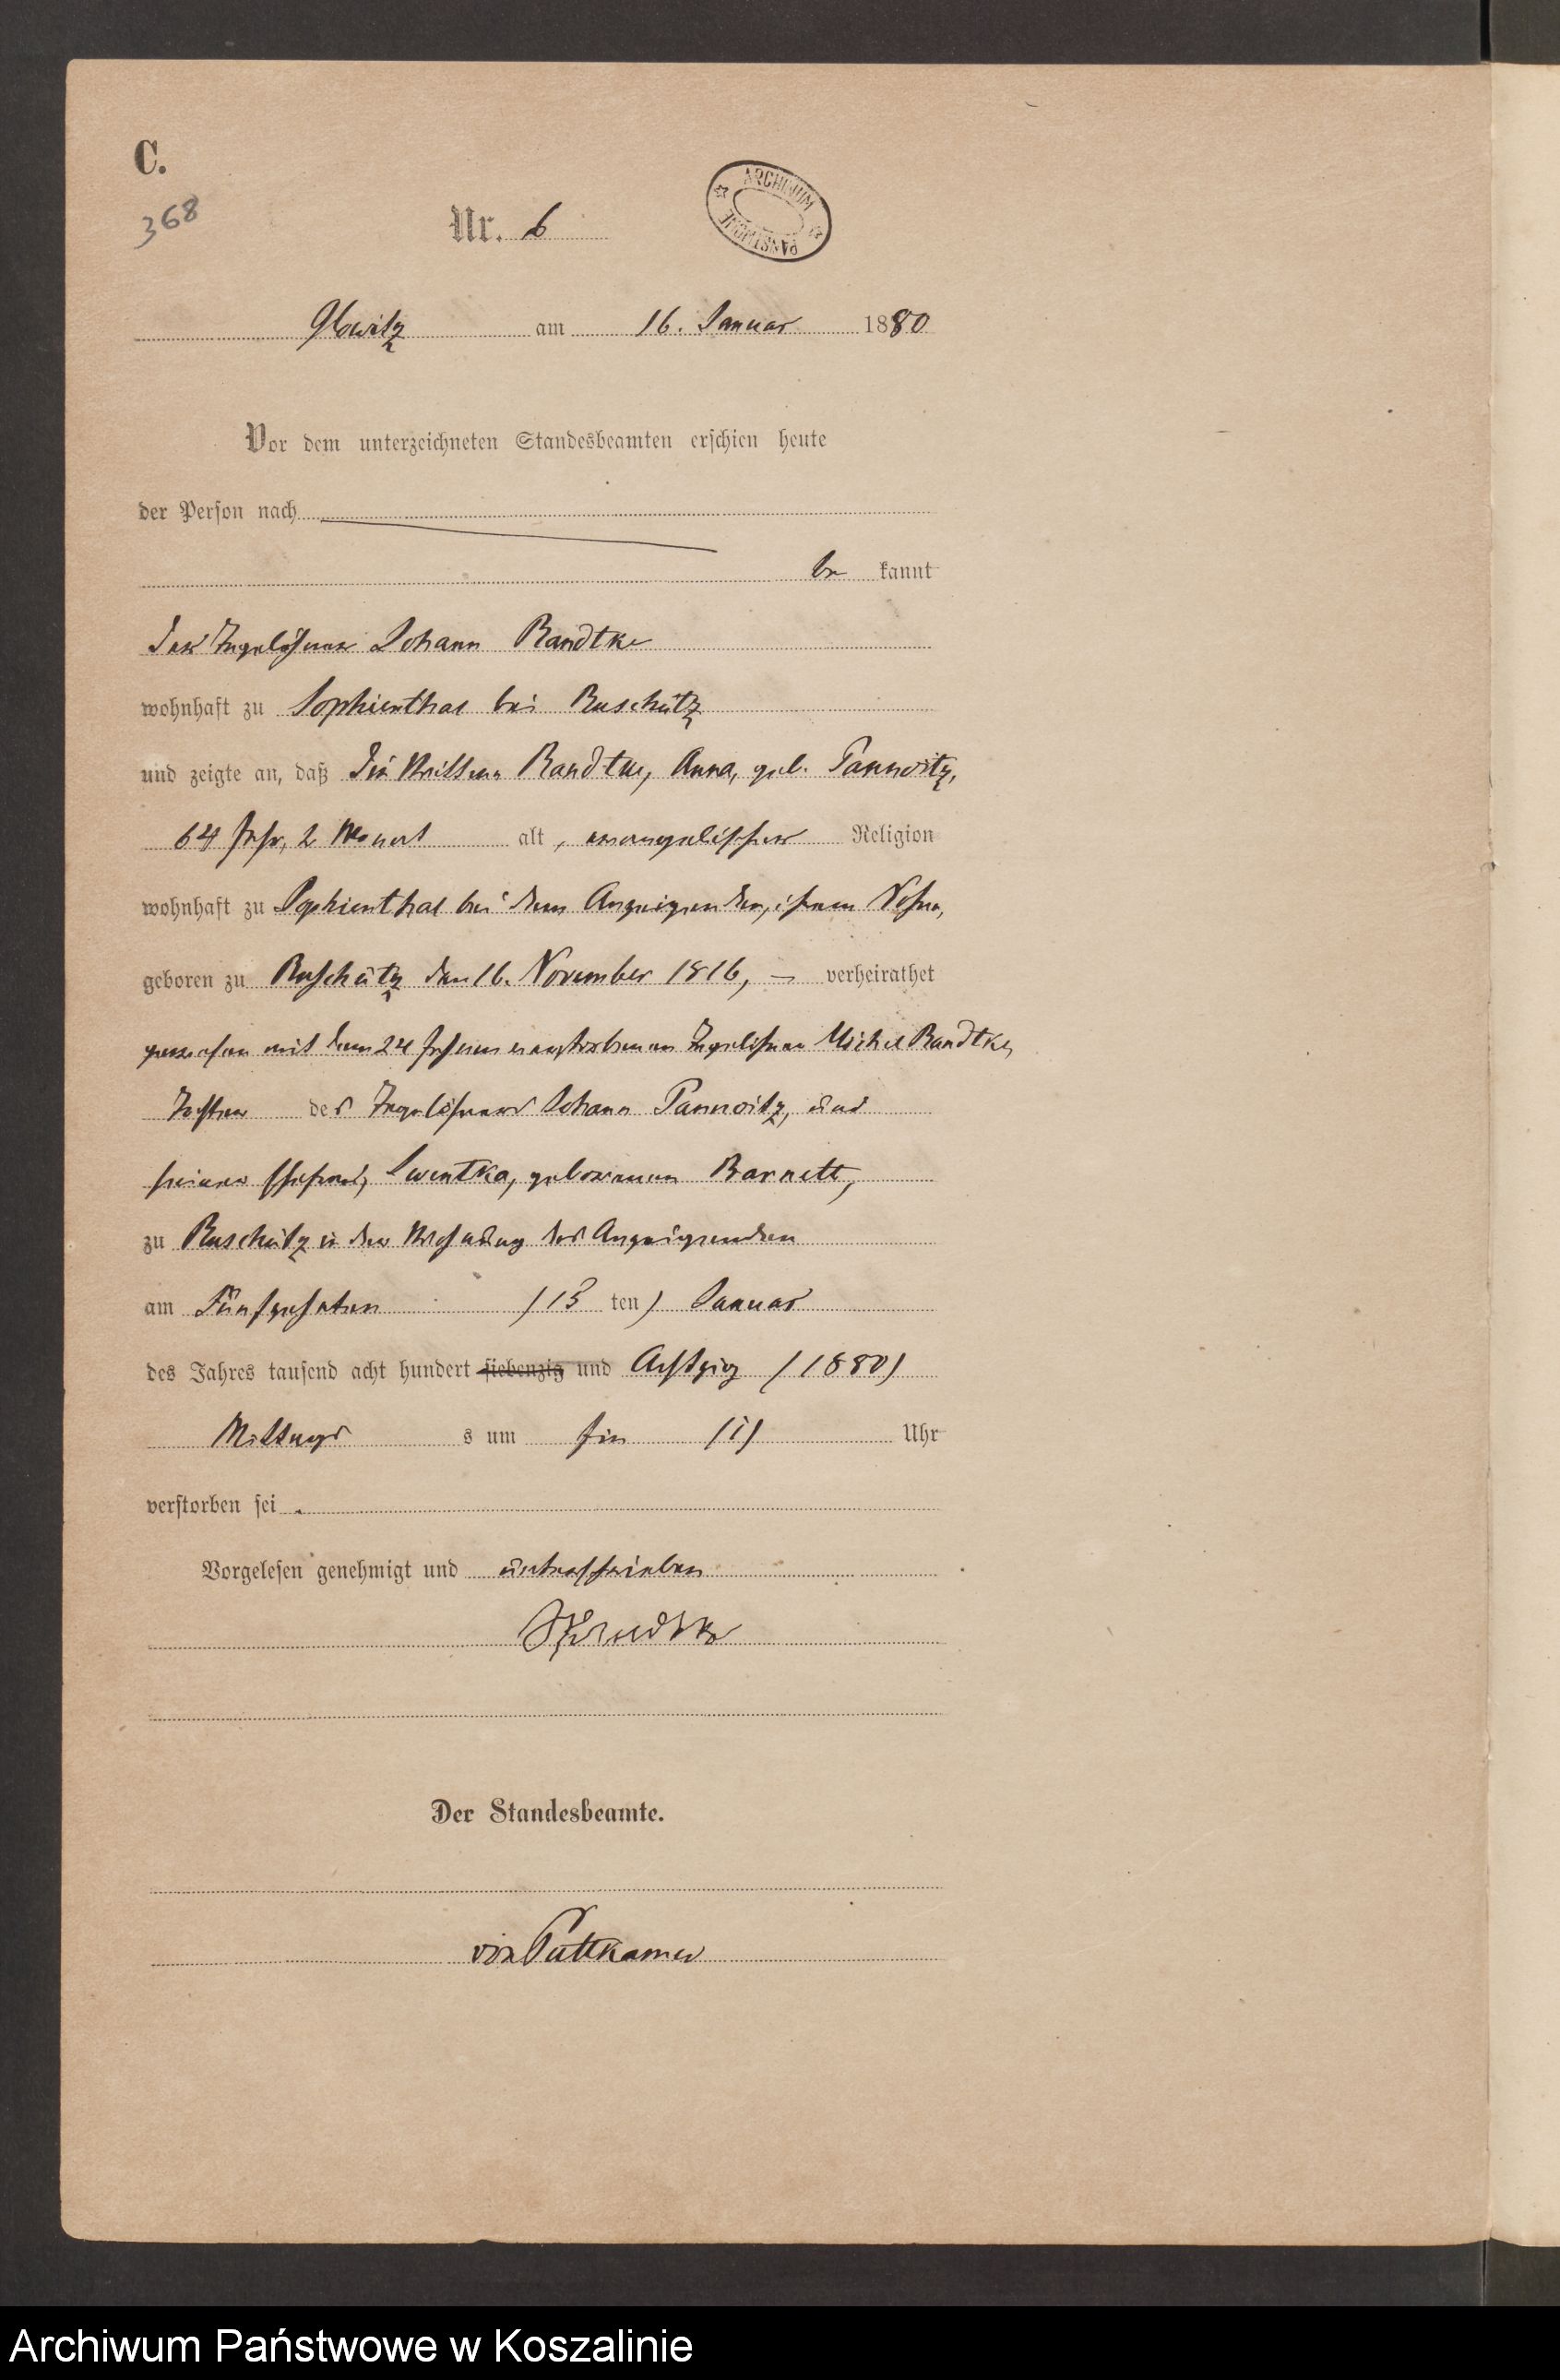 C.
368
Nr. 6
ARCHIWUM PAŃSTWOWE
Glowitz am 16. Januar 1880
Vor dem unterzeichneten Standesbeamten erschien heute
der Person nach
be kannt
der Tagelöhner Johann Randtke
wohnhaft zu Sophienthal bei Ruschütz
und zeigte an, daß die Wittwe Randtke, Anna, geb. Pannwitz,
64 Jahr, 2 Monat alt, evangelischer Religion
wohnhaft zu Sophienthal bei dem Anzeigenden, ihrem Sohne,
geboren zu Ruschütz den 16. November 1816, – verheirathet
gewesen mit dem 24 Jahren verstorbenen Tagelöhner Michel Randtke,
Tochter des Tagelöhners Johann Pannwitz, und
seiner Ehefrau, Swentka, geborenen Barnett,
zu Ruschütz in der Wohnung des Anzeigenden
am Fünfzehnten (15 ten) Januar
des Jahres tausend acht hundert siebenzig und Achtzig (1880)
Mittags s um Ein (1) Uhr
verstorben sei.
Vorgelesen genehmigt und unterschrieben
Der Standesbeamte.
von Puttkamer
Archiwum Państwowe w Koszalinie